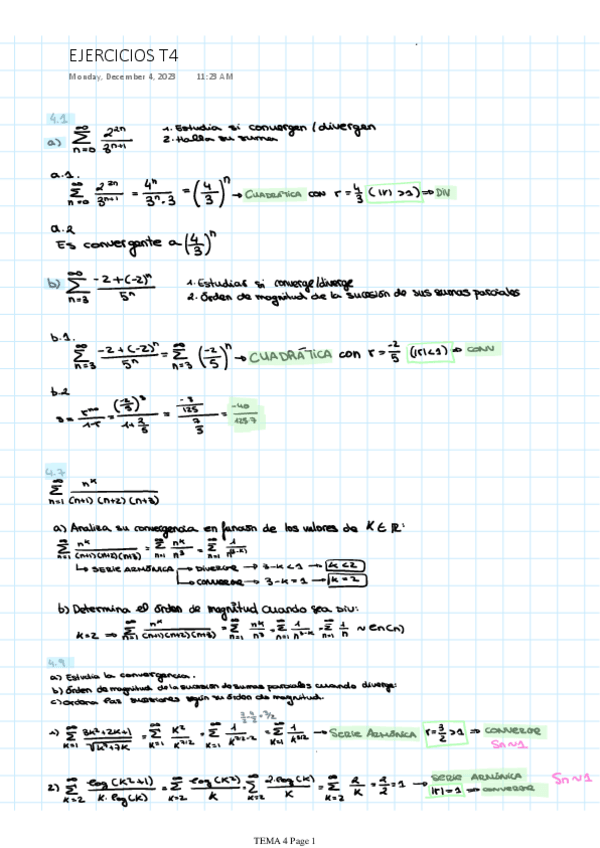 EJERCICIOS T4
Monday, December 4, 2023 11:23 AM
4.1
a) ∞ Σ n=0 2^2n / 3^n+1 1. Estudia si convergen/divergen
2. Halla su suma
a.1.
∞ Σ n=0 2^2n / 3^n+1 = 4^n / 3^n·3 = (4/3)^n → CUADRÁTICA CON r = 4/3 (|r| > 1) ⇒ DIV
a.2
Es convergante a (4/3)^n
b) ∞ Σ n=3 -2+(-2)^n / 5^n 1. Estudiar si converge/diverge
2. Órden de magnitud de la sucesión de sus sumas parciales
b.1.
∞ Σ n=3 -2+(-2)^n / 5^n = ∞ Σ n=3 (-2/5)^n → CUADRÁTICA con r = -2/5 (|r| < 1) ⇒ CONV
b.2
-40 / 125·7
4.7
n=1 n^k / (n+1)(n+2)(n+3)
a) Analiza su convergencia en función de los valores de K ∈ ℝ:
∞ Σ n=1 n^k / (n+1)(n+2)(n+3) = ∞ Σ n=1 n^k / n^3 = ∞ Σ n=1 1 / n^(3-k)
↳ SERIE ARMÓNICA → DIVERGE → 3-k < 1 → k < 2
↳ CONVERGE → 3-k = 1 → k = 2
b) Determina el órden de magnitud cuando sea DIV:
k=2 ⇒ ∞ Σ n=1 n^k / (n+1)(n+2)(n+3) = ∞ Σ n=1 n^k / n^3 = ∞ Σ n=1 1 / n^3-k = ∞ Σ n=1 1/n ~ en(n)
4.9
a) Estudia la convergencia.
b) Órden de magnitud de la sucesión de sumas parciales cuando diverge:
c) Ordena las sucesiones según su órden de magnitud.
1) ∞ Σ k=1 3k²+2k+1 / = ∞ Σ k=1 = ∞ Σ k=1 = ∞ Σ k=1 → SERIE ARMÓNICA r = 3/2 > 1 ⇒ CONVERGE
Sn~1
2) ∞ Σ k=2 log(k²+1) / k·log(k) = ∞ Σ k=2 log(k²) / k · ∞ Σ k=2 2·log(k) / k = ∞ Σ k=2 2/k = 2/2 = 1 → SERIE ARMÓNICA Sn~1
|r| = 1 ⇒ CONVERGE
TEMA 4 Page 1